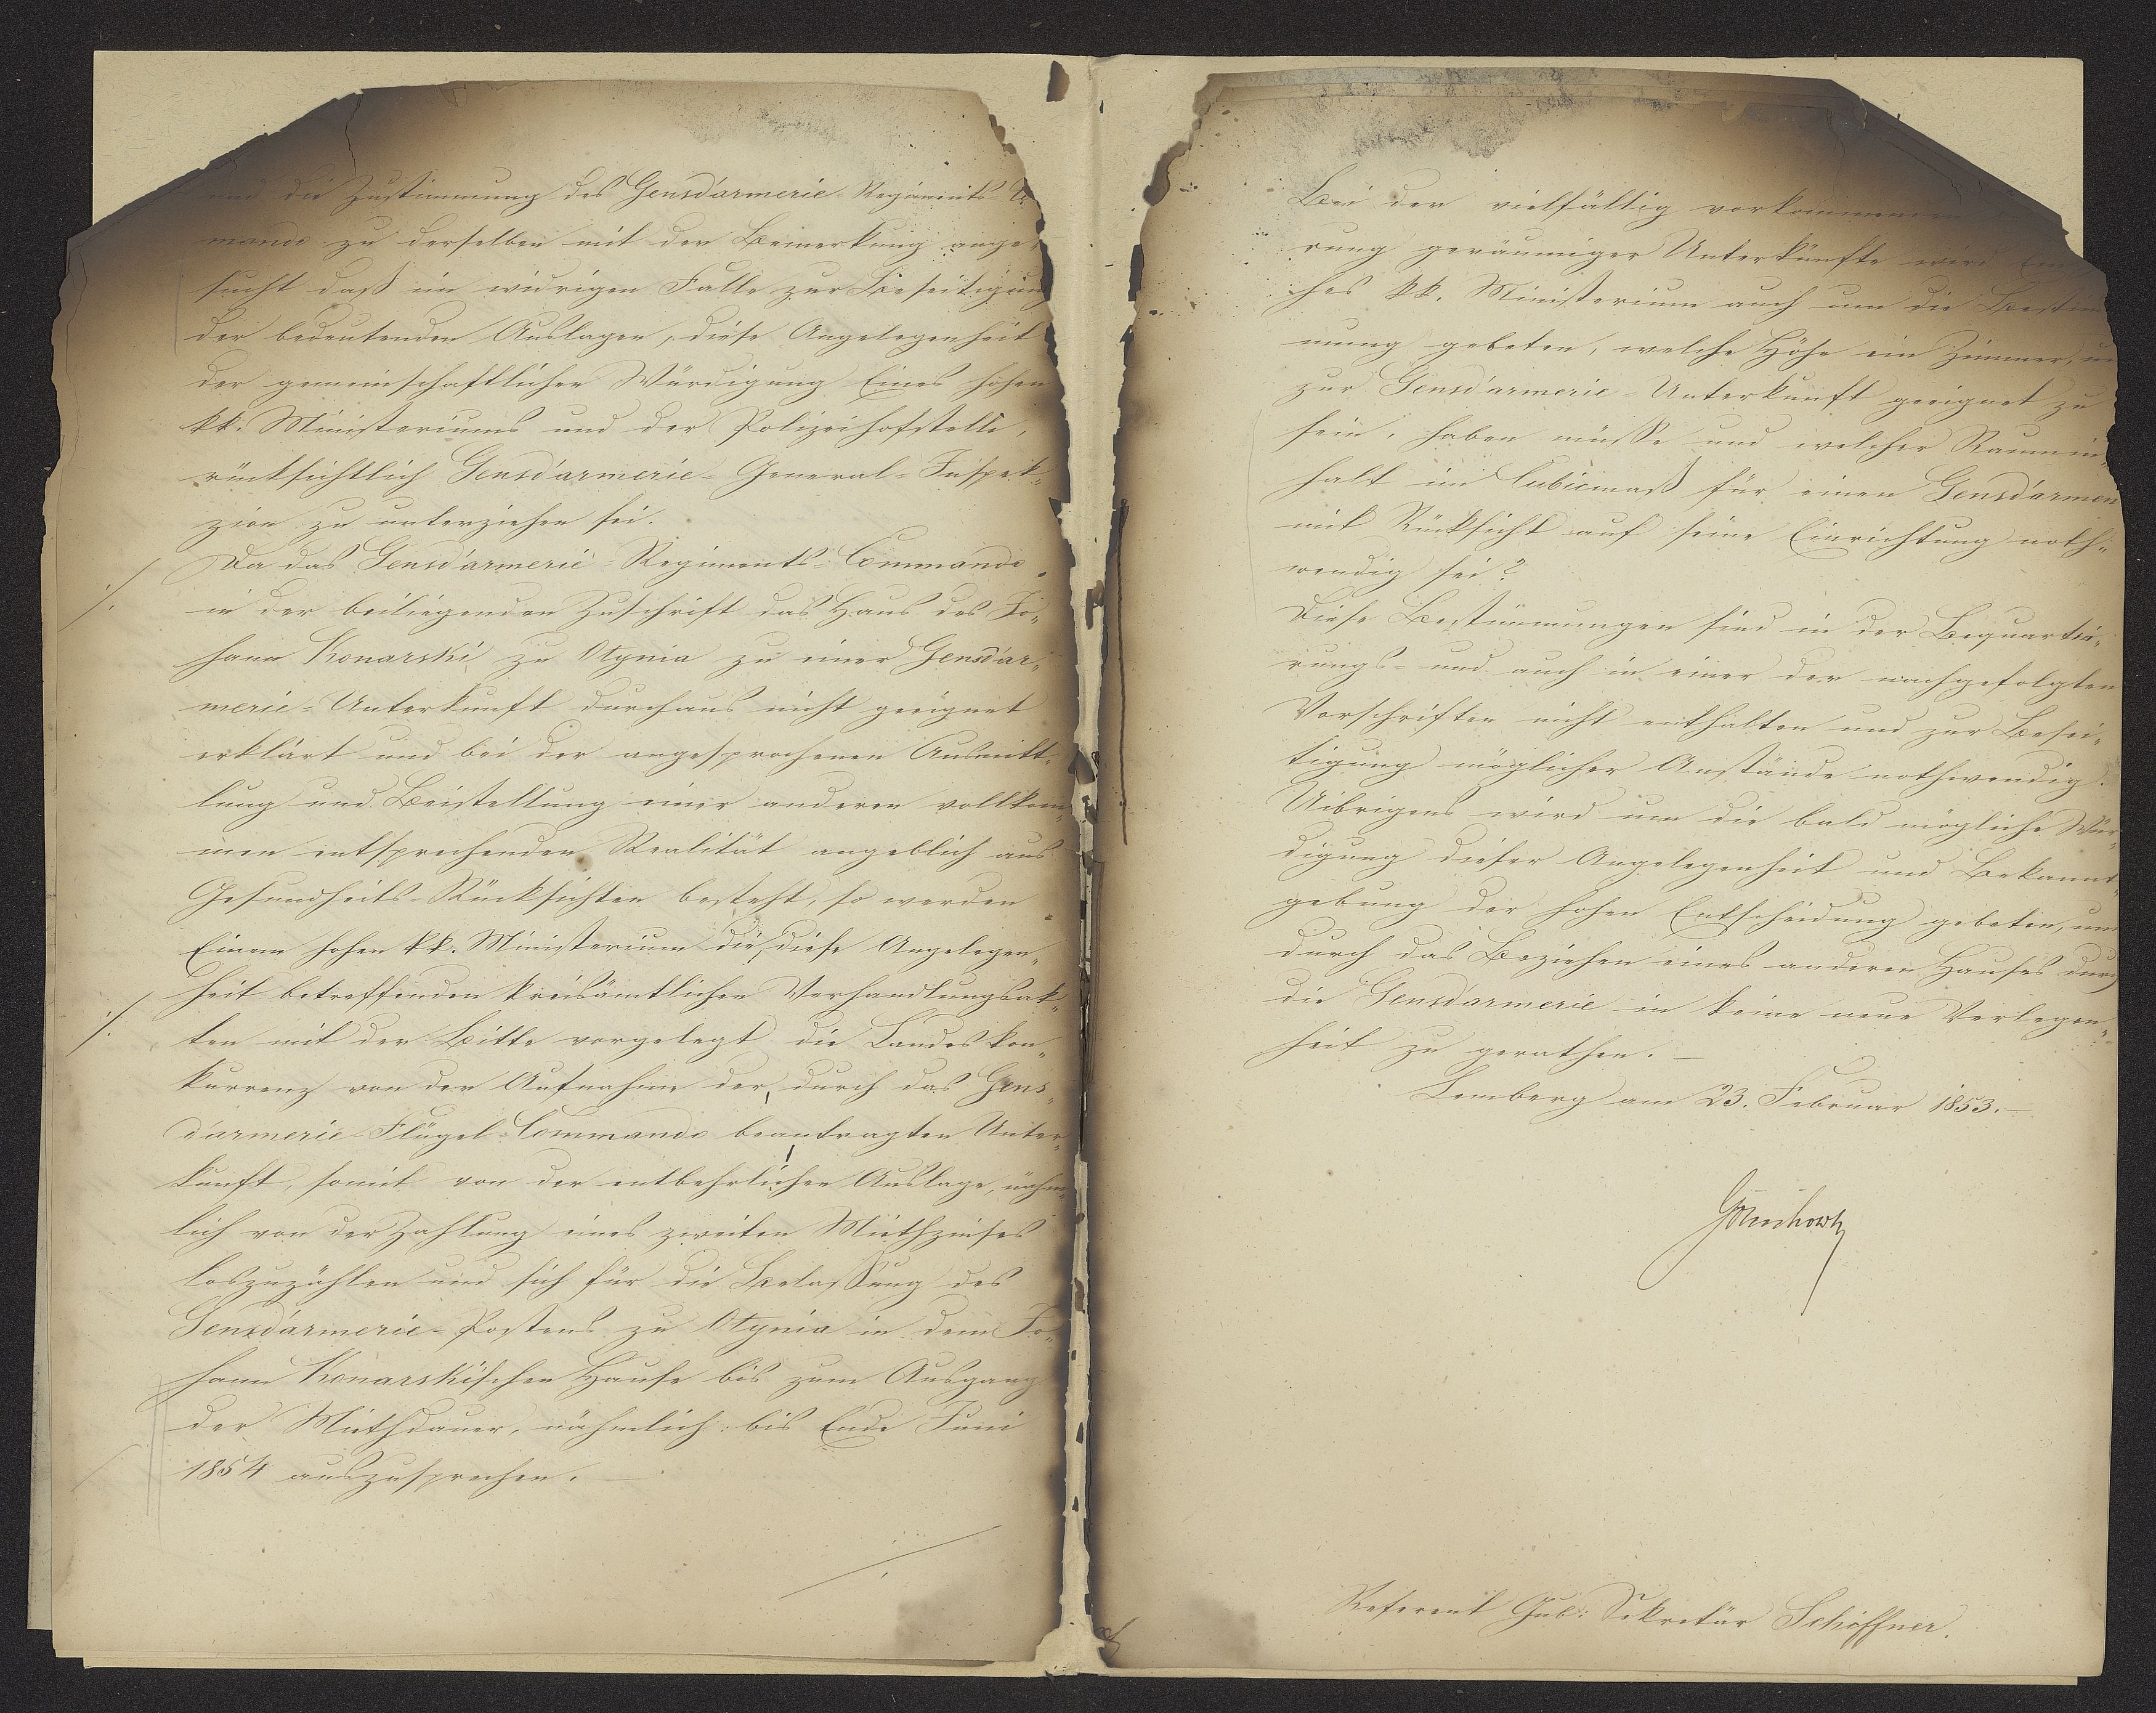 und die Zustimmung des Gensd'armerie-Regiments Co
mando zu derselben mit der Bemerkung ange-
sucht daß im widrigen Falle zur Beseitigung
der bedeutenden Auslagen, diese Angelegenheit
der gemeinschaftlichen Würdigung Eines hohen
kk. Ministeriums und der Polizeihofstelle,
rücksichtlich Gensd'armerie-General-Inspek-
zion zu unterziehen sei.
Da das Gensd'armerie-Regiments-Commando
in der beiliegenden Zuschrift das Haus des Jo-
hann Konarski zu Otynia zu einer Gensd'ar-
merie-Unterkunft durchaus nicht geeignet
erklärt und bei der angesprochenen Ausmitt-
lung und Beistellung einer anderen vollkom-
men entsprechenden Realität angeblich aus
Gesundheits-Rücksichten besteht, so werden
Einem hohen kk. Ministerium die, diese Angelegen-
heit betreffenden kreisämtlichen Verhandlungsak-
ten mit der Bitte vorgelegt die Landeskon-
kurrenz von der Aufnahme der, durch das Gens-
d'armerie-Flügel-Commando beantragten Unter-
kunft, somit von der entbehrlichen Auslage, nähm-
lich von der Zahlung eines zweiten Miethzinses
loszuzählen und sich für die Belassung des
Gensd'armerie-Postens zu Otynia in dem Jo-
hann Konarski'schen Hause bis zum Ausgang
der Miethdauer, nähmlich: bis Ende Juni
1854 auszusprechen. —
Bei der vielfältig vorkommenden
rung geräumiger Unterkünfte wird Ein
hes kk. Ministerium auch um die Bestim
mung gebeten, welche Höhe ein Zimmer, um
zur Gensd'armerie-Unterkunft geeignet zu
sein, haben müsse und welcher Raumin-
halt im Cubicmaß für einen Gensd'armen
mit Rücksicht auf seine Einrichtung noth-
wendig sei?
Diese Bestimmungen sind in der Bequartie-
rungs- und auch in einer der nachgefolgten
Vorschriften nicht enthalten und zur Besei-
tigung möglicher Anstände nothwendig.
Uibrigens wird um die bald mögliche Wür-
digung dieser Angelegenheit und Bekannt-
gebung der hohen Entscheidung gebeten, um
durch das Beziehen eines anderen Hauses durch
die Gensd'armerie in keine neue Verlegen-
heit zu gerathen. —
Lemberg am 23. Februar 1853. —
Gołuchowski
Referent Gub: Sekretär Schöffner.